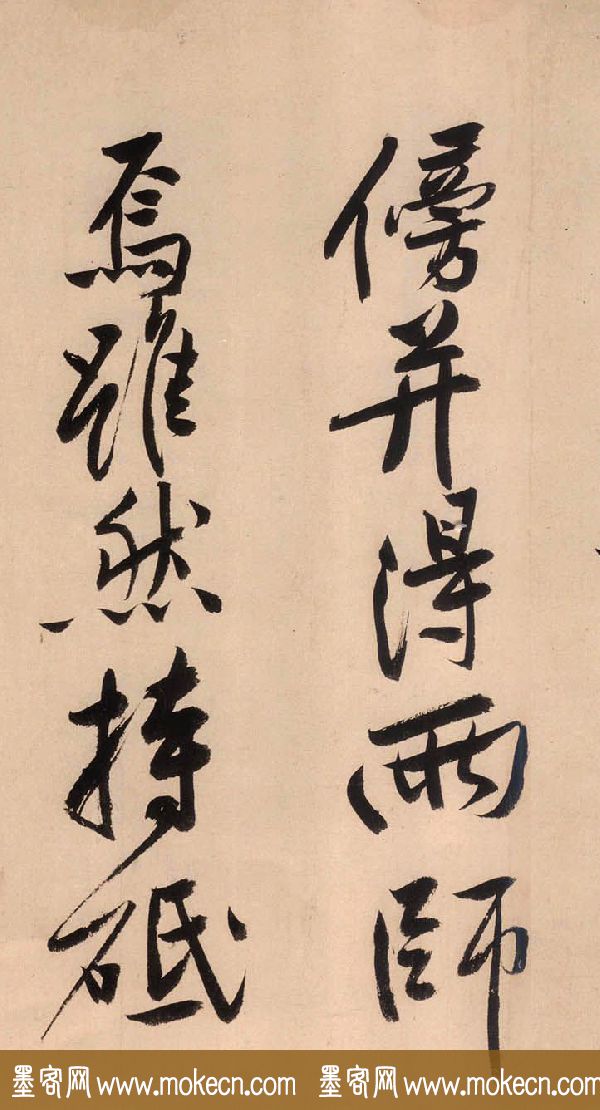 傍并得兩師
焉雖然持砥
墨客网 www.mokecn.com 墨客网 www.mokecn.com